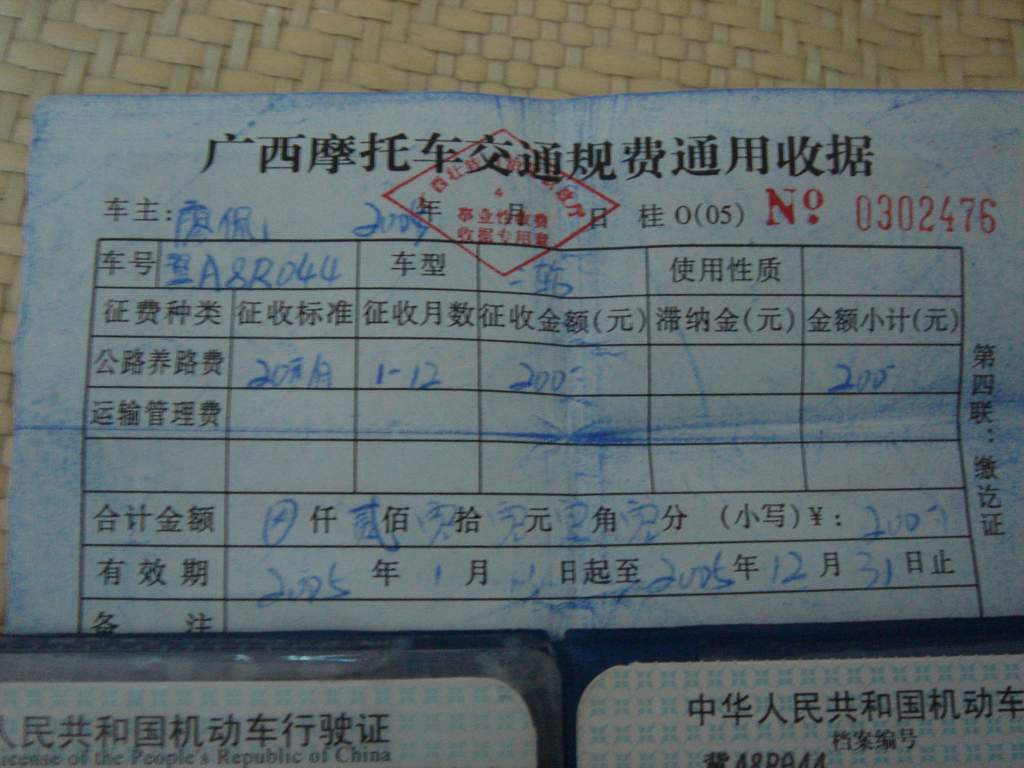 广西摩托车交通规费通用收据
事业性收费
收据专用章
车主: 2005年 月 日 桂O(05) No 0302476
车号 A8R044 车型 二轮 使用性质
征费种类 征收标准 征收月数 征收金额(元) 滞纳金(元) 金额小计(元)
公路养路费 20元/月 1-12 200 200
运输管理费
合计金额 仟 贰佰 零拾 零元 零角 零分 (小写)¥: 200
有效期 2005年 1月 1日起至 2005年 12月 31日止
备 注
第四联:缴讫证
人民共和国机动车行驶证
icense of the People's Republic of China
中华人民共和国机动车
档案编号
冀A8R044